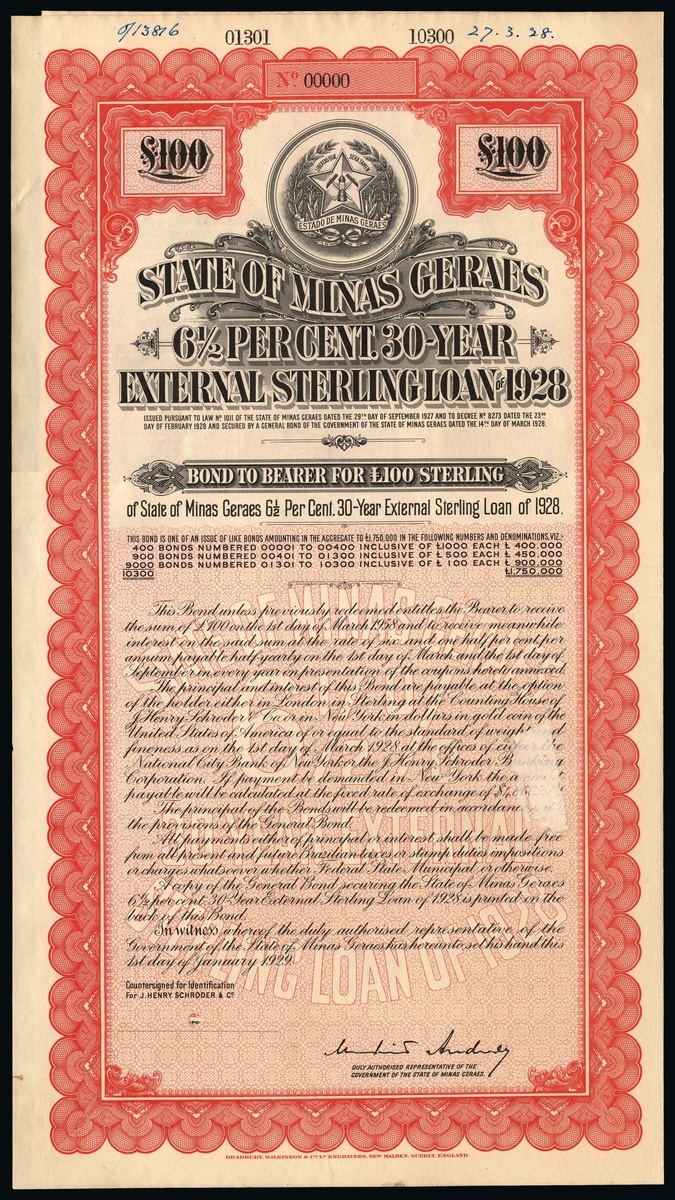 0/13816 01301 10300 27.3.28.
No 00000
£100 £100
LIBERTAS QUÆ SERA TAMEN
ESTADO DE MINAS GERAES
STATE OF MINAS GERAES
6½ PER CENT. 30-YEAR
EXTERNAL STERLING LOAN OF 1928
ISSUED PURSUANT TO LAW No 1011 OF THE STATE OF MINAS GERAES DATED THE 29TH DAY OF SEPTEMBER 1927 AND TO DECREE No 8273 DATED THE 23RD
DAY OF FEBRUARY 1928 AND SECURED BY A GENERAL BOND OF THE GOVERNMENT OF THE STATE OF MINAS GERAES DATED THE 14TH DAY OF MARCH 1928.
BOND TO BEARER FOR £100 STERLING
of State of Minas Geraes 6½ Per Cent. 30-Year External Sterling Loan of 1928.
THIS BOND IS ONE OF AN ISSUE OF LIKE BONDS AMOUNTING IN THE AGGREGATE TO £1,750,000 IN THE FOLLOWING NUMBERS AND DENOMINATIONS, VIZ.:
400 BONDS NUMBERED 00001 TO 00400 INCLUSIVE OF £1000 EACH £ 400.000
900 BONDS NUMBERED 00401 TO 01300 INCLUSIVE OF £ 500 EACH £ 450.000
9000 BONDS NUMBERED 01301 TO 10300 INCLUSIVE OF £ 100 EACH £ 900.000
10300 £1.750.000
This Bond unless previously redeemed entitles the Bearer to receive
the sum of £100 on the 1st day of March 1958 and to receive meanwhile
interest on the said sum at the rate of six and one half per cent. per
annum payable half yearly on the 1st day of March and the 1st day of
September in every year on presentation of the coupons hereto annexed.
The principal and interest of this Bond are payable at the option
of the holder either in London in Sterling at the Counting House of
J. Henry Schroder & Co. or in New York in dollars in gold coin of the
United States of America of or equal to the standard of weight and
fineness as on the 1st day of March 1928 at the offices of either the
National City Bank of New York or the J. Henry Schroder Banking
Corporation. If payment be demanded in New York the amount
payable will be calculated at the fixed rate of exchange of
The principal of the Bonds will be redeemed in accordance
the provisions of the General Bond.
All payments either of principal or interest shall be made free
from all present and future Brazilian taxes or stamp duties impositions
or charges whatsoever whether Federal State Municipal or otherwise.
A copy of the General Bond securing the State of Minas Geraes
6½ per cent. 30-Year External Sterling Loan of 1928 is printed on the
back of this Bond.
In witness whereof the duly authorised representative of the
Government of the State of Minas Geraes has hereunto set his hand this
1st day of January 1929.
Countersigned for Identification
For J. HENRY SCHRODER & Co
DULY AUTHORISED REPRESENTATIVE OF THE
GOVERNMENT OF THE STATE OF MINAS GERAES.
BRADBURY, WILKINSON & Co Ld ENGRAVERS, NEW MALDEN, SURREY, ENGLAND.